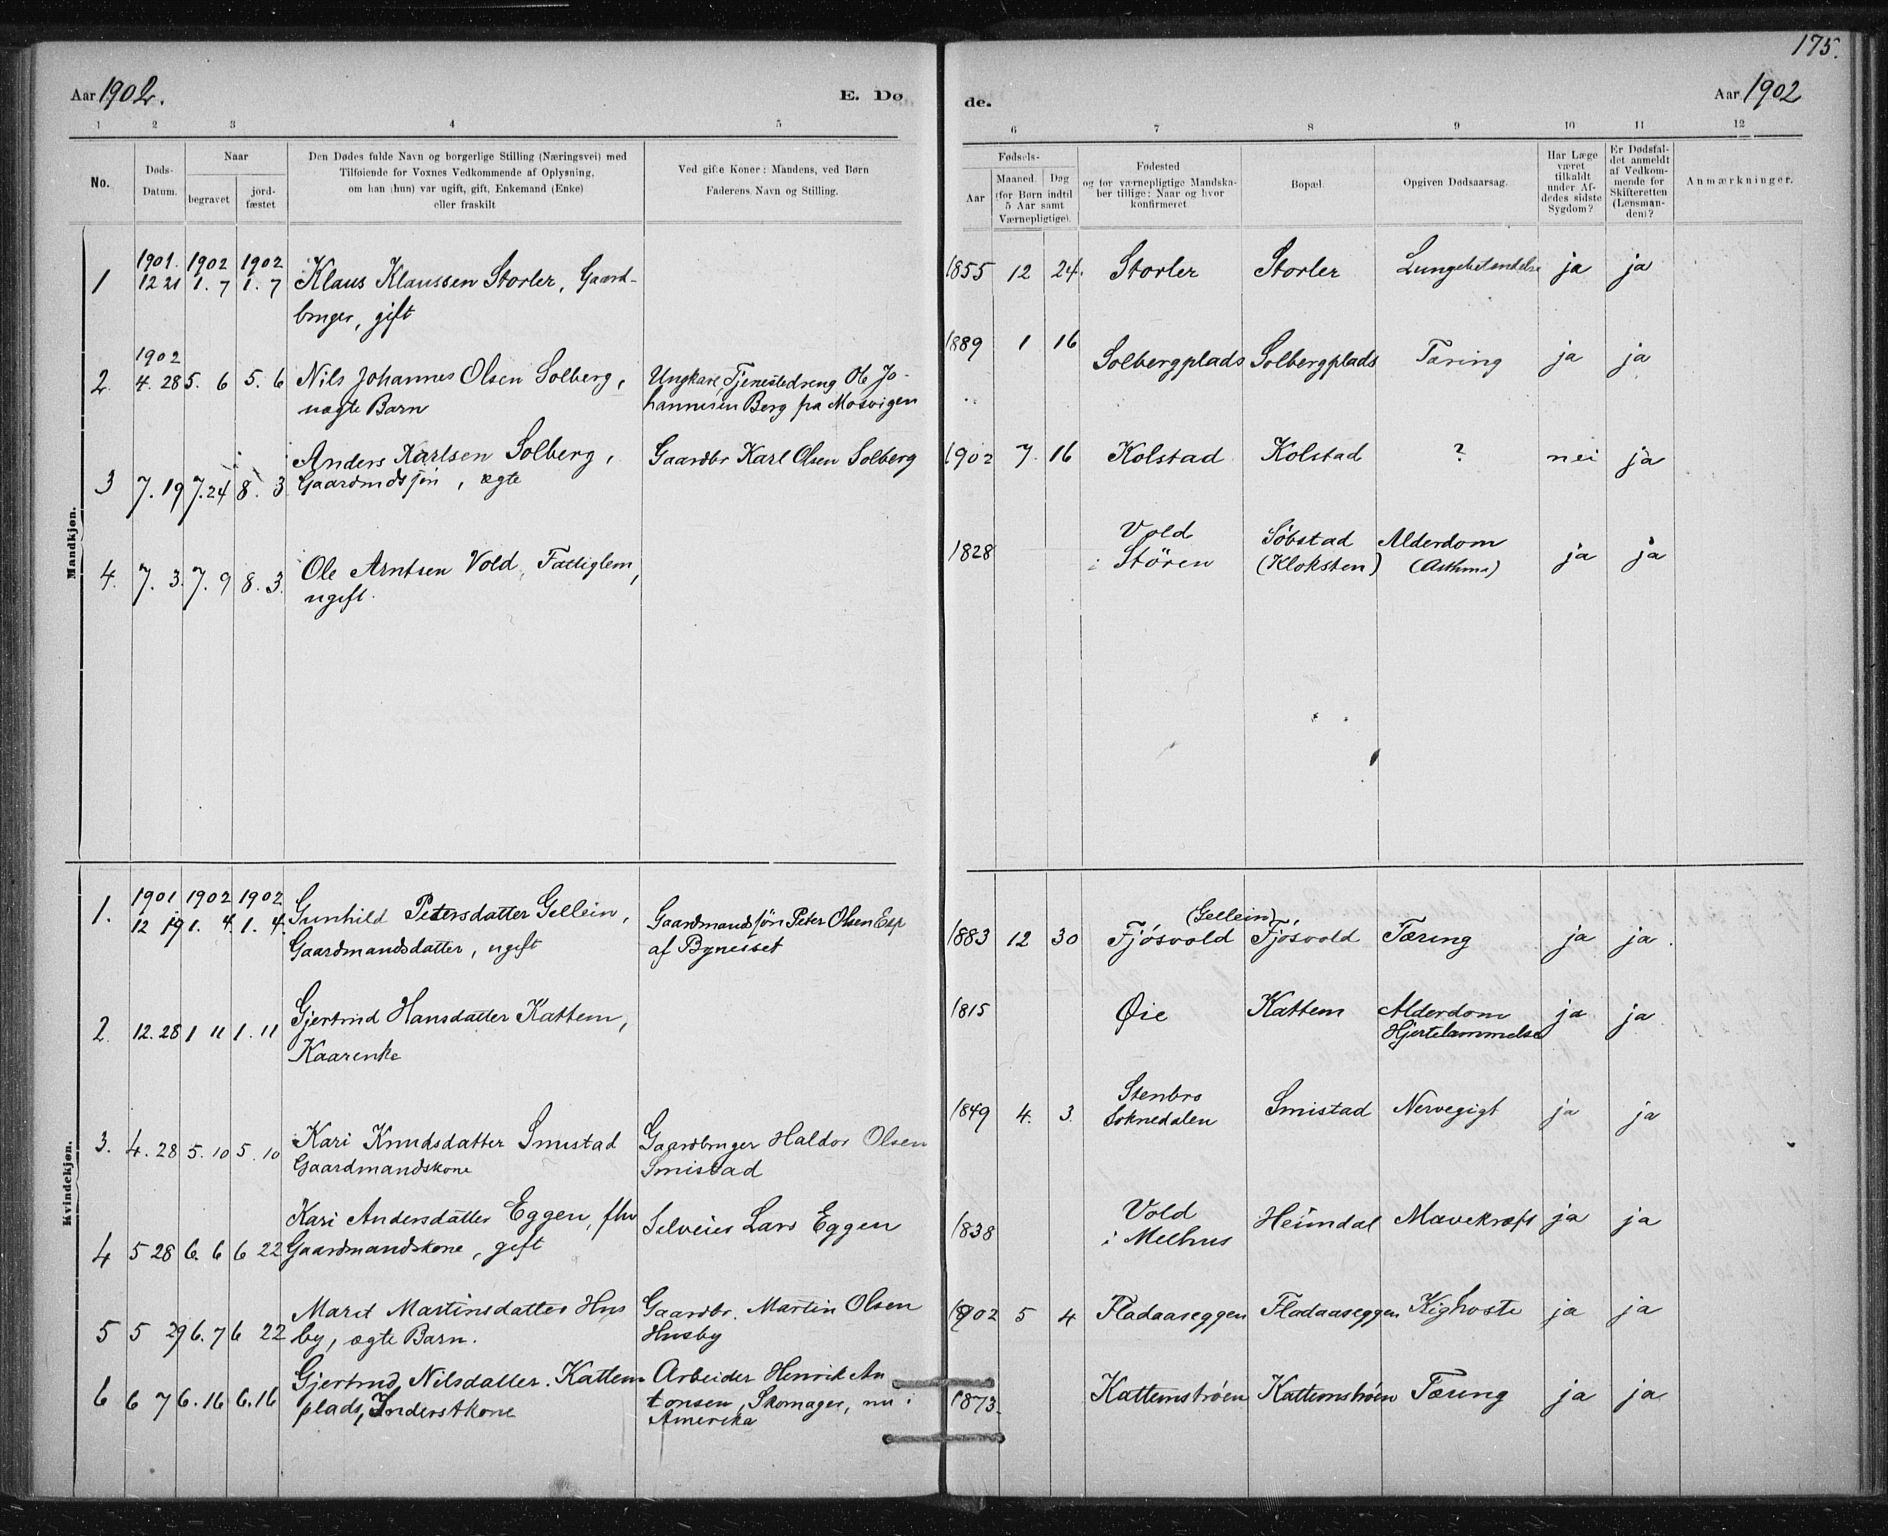 175.
Aar 1902.
E. Dø
de.
Aar 1902
1 2 3 4 5
6 7 8 9 10 11 12
No.
Døds-
Datum.
Naar
begravet
jord-
fæstet
Den Dødes fulde Navn og borgerlige Stilling (Næringsvei) med
Tilføiende for Voxnes Vedkommende af Oplysning,
om han (hun) var ugift, gift, Enkemand (Enke)
eller fraskilt
Ved gifte Koner: Mandens, ved Børn
Faderens Navn og Stilling.
Fødsels-
Aar
Maaned. Dag
(for Børn indtil
5 Aar samt
Værnepligtige).
Fødested
og for værnepligtige Mandska-
ber tillige: Naar og hvor
konfirmeret
Bopæl.
Opgiven Dødsaarsag.
Har Læge
været
tilkaldt
under Af-
dødes sidste
Sygdom?
Er Dødsfal-
det anmeldt
af Vedkom-
mende for
Skifteretten
(Lensman-
den)?
Anmærkninger.
Mandkjøn.
1901. 1902 1902
1 12 21 1. 7 1. 7 Klaus Klaussen Storler, Gaard-
bruger, gift
1855 12 24. Storler Storler Lungebetændelse ja ja
1902
2. 4. 28 5. 6 5. 6 Nils Johannes Olsen Solberg,
uægte Barn
Ungkarl, Tjenestedreng Ole Jo-
hannesen Berg fra Mosvigen
1889 1 16 Solbergplads Solbergplads Tæring ja ja
3 7. 19 7. 24 8. 3 Anders Karlsen Solberg,
Gaardmdsjøn, ægte
Gaardbr Karl Olsen Solberg
1902 7 16 Kolstad Kolstad ? nei ja
4. 7. 3. 7. 9 8. 3. Ole Arntsen Vold, Fattiglem,
ugift.
1828 Vold
i Støren
Søbstad
(Kloksten)
Alderdom
(Asthma)
ja ja
Kvindekjøn.
1901 1902 1902
1. 12 19 1. 4. 1. 4. Gunhild Petersdatter Gellein,
Gaardmandsdatter, ugift
Gaardmandssøn Peter Olsen Esp
af Bynesset
1883 12 30 Fjøsvold (Gellein), Fjøsvold Tæring ja ja.
2. 12. 28 1 11 1. 11 Gjertrud Hansdatter Kattem,
Kaarenke
1815 Øie Kattem Alderdom
Hjertelammelse
ja ja
3. 4. 28 5. 10 5. 10 Kari Knudsdatter Smistad
Gaardmandskone
Gaardbruger Haldor Olsen
Smistad
1849 4. 3. Stenbro
Soknedalen
Smistad Nervegigt ja ja
4 5 28 6. 6 6 22 Kari Andersdatter Eggen, fhv
Gaardmandskone, gift
Selveier Lars Eggen
1838 Vold
i Melhus
Heimdal Mavekræft ja ja
5 5 29 6. 7 6 22 Marit Martinsdatter Hus
by, ægte Barn.
Gaardbr. Martin Olsen
Husby
1902 5 4 Fladaaseggen Fladaaseggen Kighoste ja ja
6 6 7 6. 16 6. 16 Gjertrud Nilsdatter Kattem-
plads, Inderstkone
Arbeider Henrik An
tonsen, Skomager, nu i
Amerika
1873 Kattemstrøen Kattemstrøen Tæring ja ja